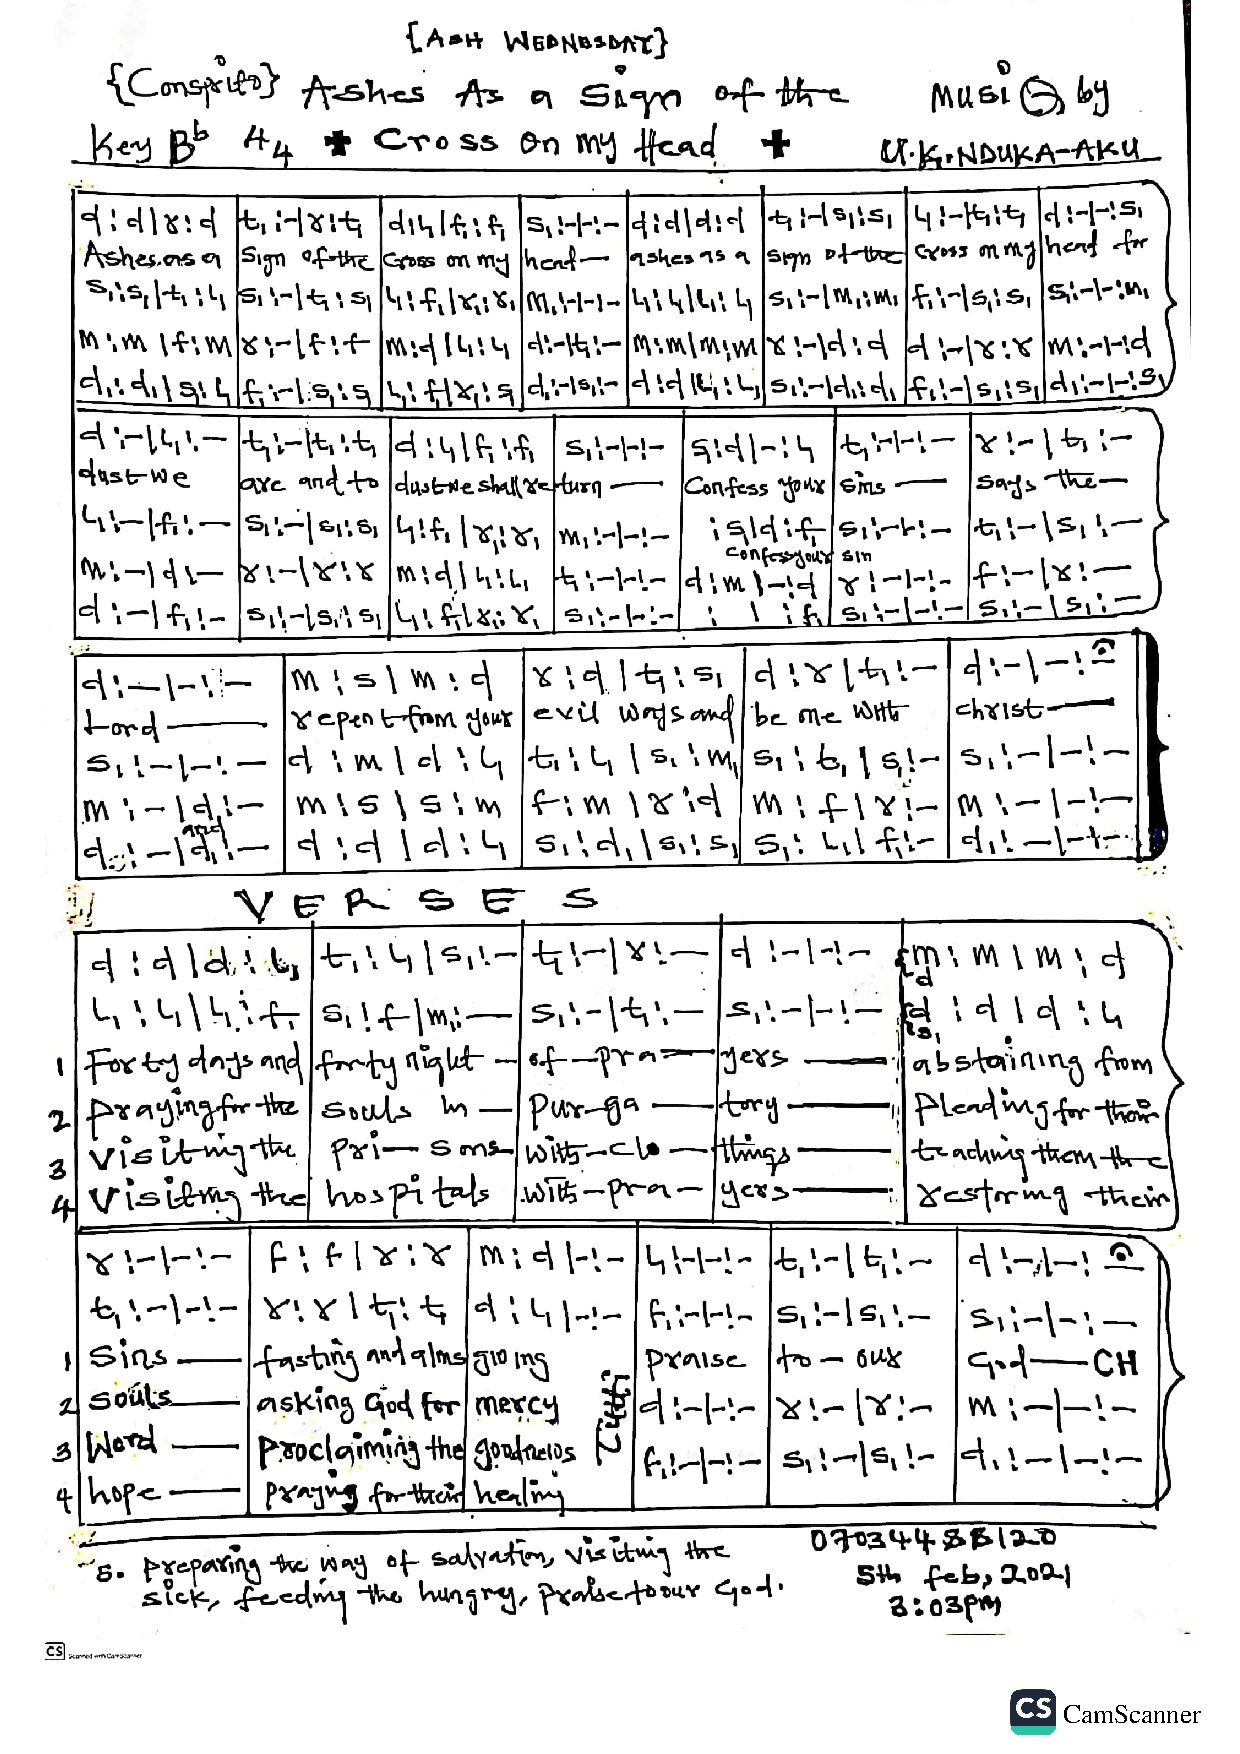 {ASH WEDNESDAY}
{Conspirito} Ashes As a Sign of the Music by
Key Bb 4/4 + Cross On my Head + U.K. NDUKA-AKU
d : d | r : d t₁ : - | r : t₁ d : l₁ | f₁ : f₁ s₁ : - | - : - d : d | d : d t₁ : - | s₁ : s₁ l₁ : - | t₁ : t₁ d : - | - : s₁
Ashes as a Sign of the Cross on my head — ashes as a sign of the cross on my head for
s₁ : s₁ | t₁ : l₁ s₁ : - | t₁ : s₁ l₁ : f₁ | r₁ : r₁ m₁ : - | - : - l₁ : l₁ | l₁ : l₁ s₁ : - | m₁ : m₁ f₁ : - | s₁ : s₁ s₁ : - | - : m₁
m : m | f : m r : - | f : f m : d | l₁ : l₁ d : - | t₁ : - m : m | m : m r : - | d : d d : - | r : r m : - | - : d
d₁ : d₁ | s₁ : l₁ f₁ : - | s₁ : s₁ l₁ : f₁ | r₁ : s₁ d₁ : - | s₁ : - d : d | l₁ : l₁ s₁ : - | d₁ : d₁ f₁ : - | s₁ : s₁ d₁ : - | - : s₁
d : - | l₁ : - t₁ : - | t₁ : t₁ d : l₁ | f₁ : f₁ s₁ : - | - : - s₁ : d | - : l₁ t₁ : - | - : - r : - | t₁ : -
dust we are and to dust we shall return — Confess your sins — says the —
l₁ : - | f₁ : - s₁ : - | s₁ : s₁ l₁ : f₁ | r₁ : r₁ m₁ : - | - : - : s₁ | d : f₁ s₁ : - | - : - t₁ : - | s₁ : -
confess your sin
m : - | d : - r : - | r : r m : d | l₁ : l₁ t₁ : - | - : - d : m | - : d r : - | - : - f : - | r : -
d : - | f₁ : - s₁ : - | s₁ : s₁ l₁ : f₁ | r₁ : r₁ s₁ : - | - : - : | : f₁ s₁ : - | - : - s₁ : - | s₁ : -
d : - | - : - m : s | m : d r : d | t₁ : s₁ d : r | t₁ : - d : - | - : -
Lord — repent from your evil ways and be me with christ —
s₁ : - | - : - d : m | d : l₁ t₁ : l₁ | s₁ : m₁ s₁ : t₁ | s₁ : - s₁ : - | - : -
m : - | d : - m : s | s : m f : m | r : d m : f | r : - m : - | - : -
and
d : - | d₁ : - d : d | d : l₁ s₁ : d₁ | s₁ : s₁ s₁ : l₁ | f₁ : - d₁ : - | - : -
VERSES
d : d | d : l₁ t₁ : l₁ | s₁ : - t₁ : - | r : - d : - | - : - {m : m | m : d
d
l₁ : l₁ | l₁ : f₁ s₁ : f | m₁ : - s₁ : - | t₁ : - s₁ : - | - : - {d : d | d : l₁
s₁
1 Forty days and forty night — of — pra — yers — abstaining from
2 Praying for the souls in — Pur-ga — tory — Pleading for their
3 Visiting the pri — sons with — clo — things — teaching them the
4 Visiting the hospitals with — pra — yers — restoring their
r : - | - : - f : f | r : r m : d | - : - l₁ : - | - : - t₁ : - | t₁ : - d : - | - : -
t₁ : - | - : - r : r | t₁ : t₁ d : l₁ | - : - f₁ : - | - : - s₁ : - | s₁ : - s₁ : - | - : -
1 Sins — fasting and alms giving praise to — our God — CH
2 souls — asking God for mercy d : - | - : - r : - | r : - m : - | - : -
3 Word — Proclaiming the goodness f₁ : - | - : - s₁ : - | s₁ : - d₁ : - | - : -
4 hope — praying for their healing
5. preparing the way of salvation, visiting the
sick, feeding the hungry, praise to our God.
07034488120
5th feb, 2021
3:03pm
CS Scanned with CamScanner
CS CamScanner